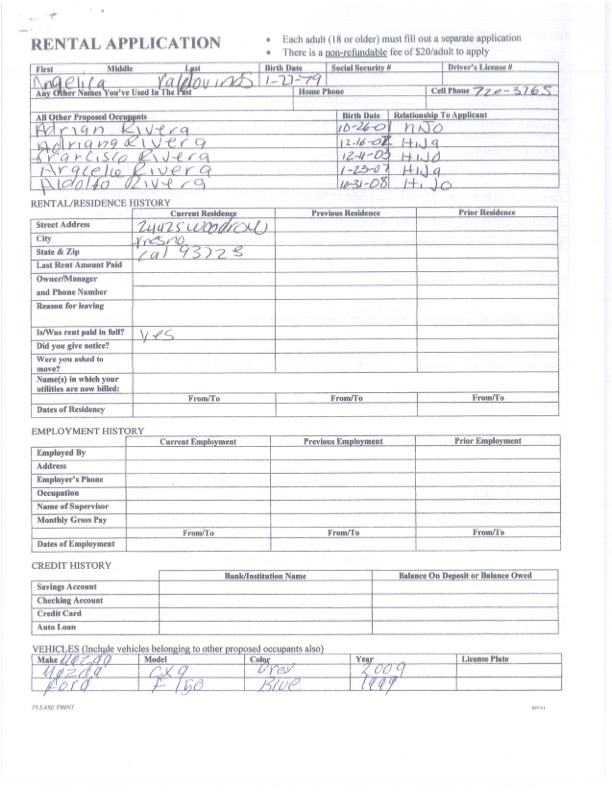 RENTAL APPLICATION
• Each adult (18 or older) must fill out a separate application
• There is a non-refundable fee of $20/adult to apply
First Middle Last Birth Date Social Security # Driver's License #
Angelica 1-27-79
Any Other Names You've Used In The Past Home Phone Cell Phone 720-3765
All Other Proposed Occupants Birth Date Relationship To Applicant
Adrian Rivera 10-26-0
Adriana Rivera 12-16-02 Hija
Francisco Rivera 12-4-03 Hijo
Rivera 1-23-07 Hija
Aldolfo Rivera 10-31-08 Hijo
RENTAL/RESIDENCE HISTORY
Current Residence Previous Residence Prior Residence
Street Address woodrow
City Fresno
State & Zip Cal 93723
Last Rent Amount Paid
Owner/Manager
and Phone Number
Reason for leaving
Is/Was rent paid in full? yes
Did you give notice?
Were you asked to
move?
Name(s) in which your
utilities are now billed:
From/To From/To From/To
Dates of Residency
EMPLOYMENT HISTORY
Current Employment Previous Employment Prior Employment
Employed By
Address
Employer's Phone
Occupation
Name of Supervisor
Monthly Gross Pay
From/To From/To From/To
Dates of Employment
CREDIT HISTORY
Bank/Institution Name Balance On Deposit or Balance Owed
Savings Account
Checking Account
Credit Card
Auto Loan
VEHICLES (Include vehicles belonging to other proposed occupants also)
Make Mazda Model Color Year License Plate
Mazda CX9 Grey 2009
Ford F 150 Blue 1999
PLEASE PRINT